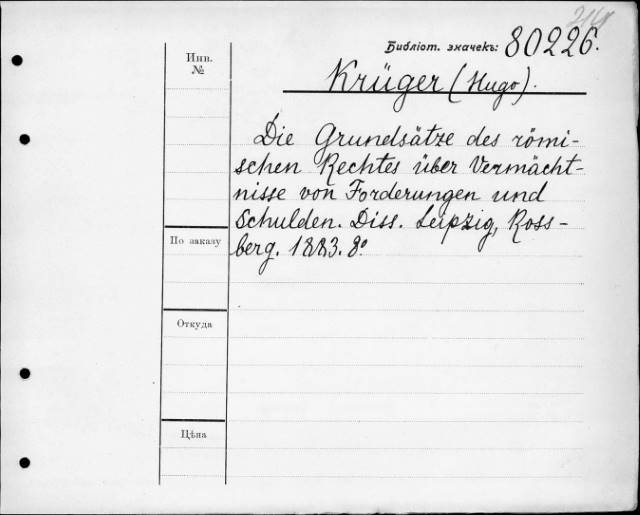 Библіот. значекъ: 80226.
Инв.
№
Krüger (Hugo).
Die Grundsätze des römi-
schen Rechtes über Vermächt-
nisse von Forderungen und
Schulden. Diss. Leipzig, Ross-
berg. 1883. 8º
По заказу
Откуда
Цѣна